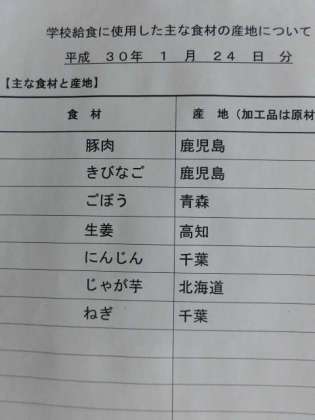 学校給食に使用した主な食材の産地について
平成 30年 1 月 24 日 分
【主な食材と産地】
食 材 産 地(加工品は原材
豚肉 鹿児島
きびなご 鹿児島
ごぼう 青森
生姜 高知
にんじん 千葉
じゃが芋 北海道
ねぎ 千葉